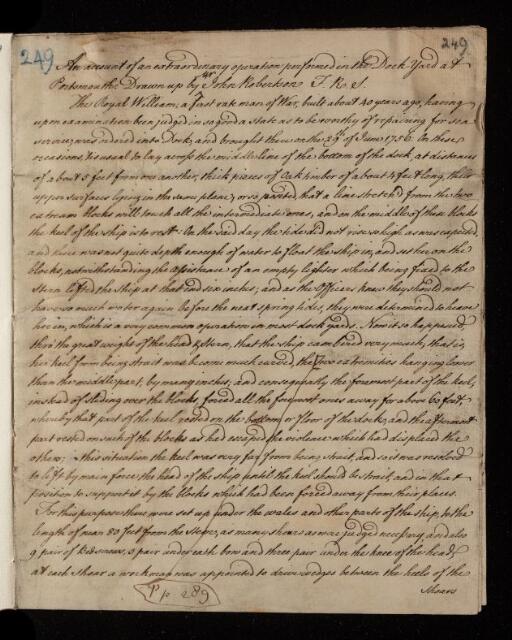 249
249.
An account of an extraordinary operation performed in the Dock Yard at
Portsmouth: Drawn up by Mr John Robertson F. R. S.
The Royal William, a first rate man of War, built about 40 years ago, having
upon examination been judged in so good a state as to be worthy of repairing for sea
service, was ordered into Dock, and brought there on the 29th of June 1756. On these
occasions, it is usual to lay across the middle line of the bottom of the dock, at distances
of about 5 feet from one another, thick pieces of Oak timber of about 4 feet long, their
upper surfaces lying in the same plane, or so posited, that a line stretch'd from the two
extream blocks will touch all the intermediate ones, and on the middle of these blocks
the keel of the ship is to rest. On the said day the tide did not rise so high as was expected,
and there was not quite depth enough of water to float the ship in, and set her on the
blocks, notwithstanding the assistance of an empty lighter which being fixed to the
Stern lifted the ship at that end six inches; and as the Officers knew they should not
have so much water again before the next spring tides, they were determined to heave
her in, which is a very common operation in most dock yards. Now it so happened,
thro' the great weight of the head & stern, that the ship cambered very much, that is,
her keel from being strait was become much curved, the two extremities hanging lower
than the middle part, by many inches; and consequently the foremost part of the keel,
instead of sliding over the blocks, forced all the foremost ones away for about 60 feet
whereby that part of the keel rested on the bottom or floor of the dock, and the aftermost
part rested on such of the blocks as had escaped the violence which had displaced the
others; in this situation the keel was very far from being strait, and so it was resolved
to lift by main force the head of the ship until the keel should be strait, and in that
position to support it by the blocks which had been forced away from their places.
For this purpose there were set up under the wales and other parts of the ship, to the
length of near 80 feet from the Stem, as many shores as were judged necessary, and also
9 pair of Bed screws, 3 pair under each bow and three pair under the knee of the head;
at each Shoar a workman was appointed to drive wedges between the heels of the
Shoars
P p 289